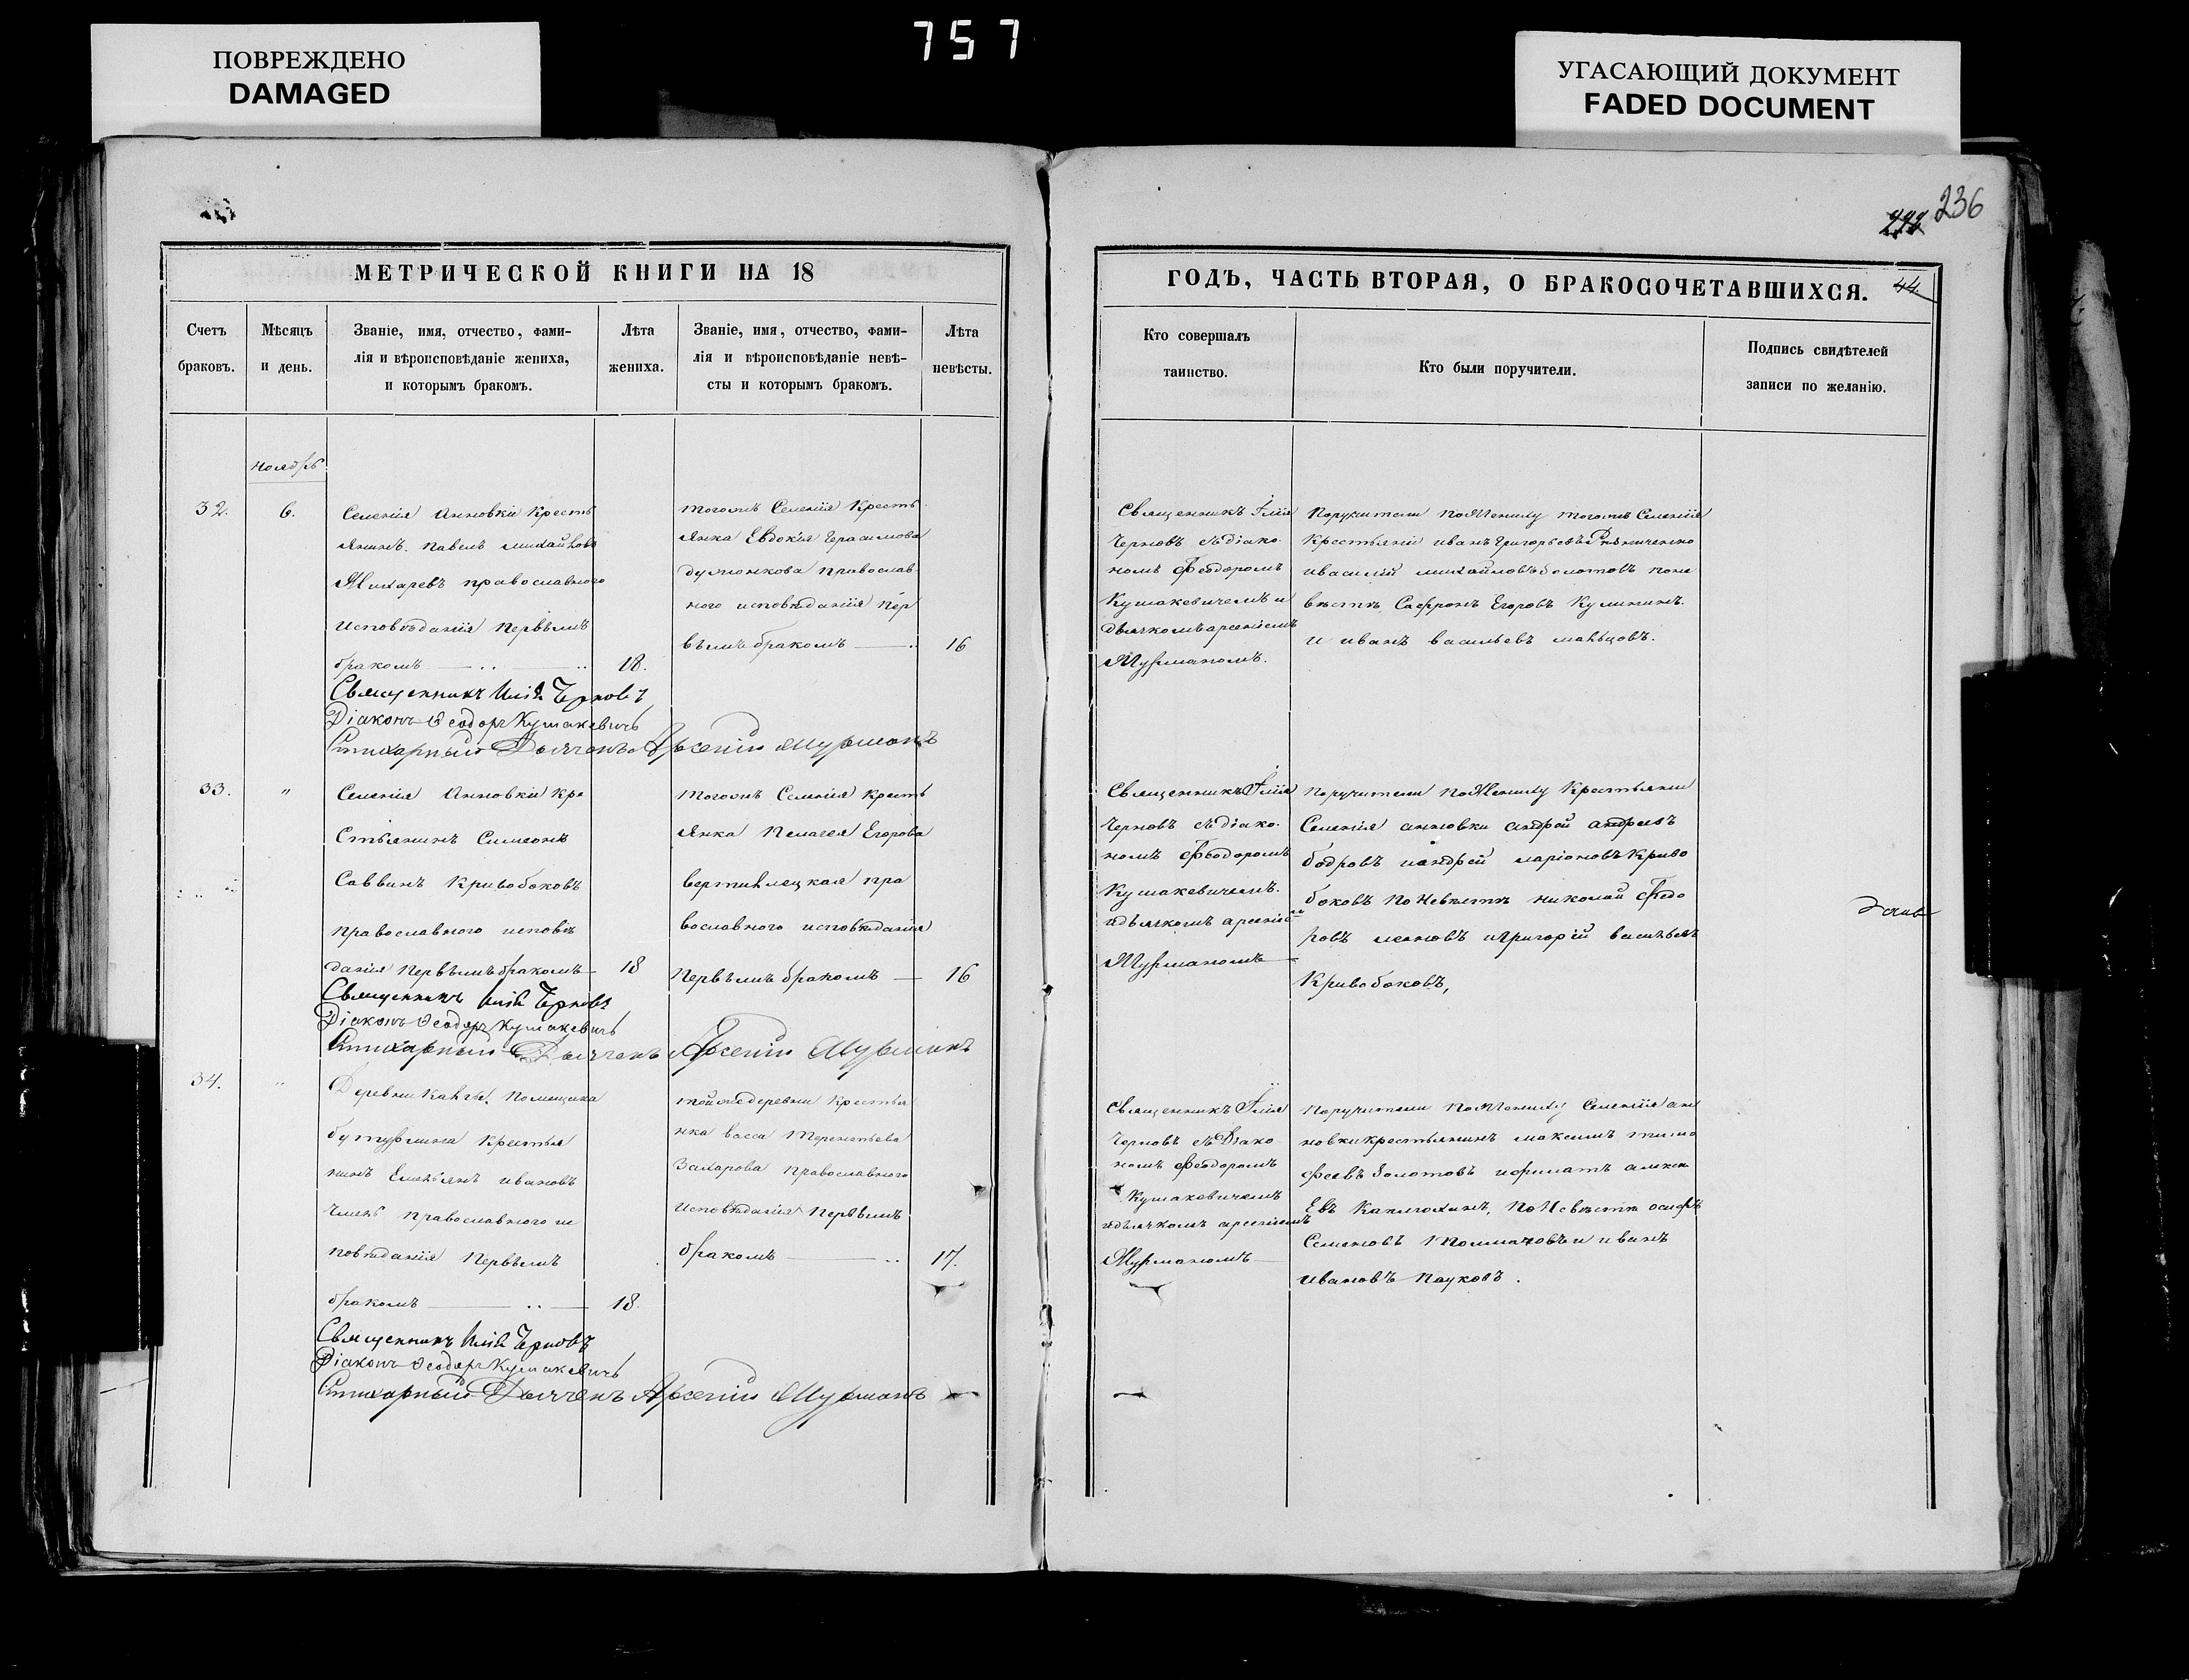 757
ПОВРЕЖДЕНО
DAMAGED
УГАСАЮЩИЙ ДОКУМЕНТ
FADED DOCUMENT
236
МЕТРИЧЕСКОЙ КНИГИ НА 18
Счетъ
браковъ.
Мѣсяцъ
и день.
Званіе, имя, отчество, фами-
лія и вѣроисповѣданіе жениха,
и которымъ бракомъ.
Лѣта
жениха.
Званіе, имя, отчество, фами-
лія и вѣроисповѣданіе невѣ-
сты и которымъ бракомъ.
Лѣта
невѣсты.
ноябрь
32.
6.
Селенія Анновки Кресть
янинъ. Павелъ михайловъ
Жихаревъ православного
Исповѣданія Первымъ
бракомъ
18.
тогожъ Селенія Кресть
янка Евдокія Герасимова
православ
ного исповѣданія Пер
вымъ бракомъ
16
Священникъ Илія Черновъ
Діаконъ Феодоръ Кушакевичъ
Стихарный Дьячекъ Арсеній Мурманъ
33.
"
Селенія Анновки Кре
стьянинъ Симеонъ
Саввинъ Кривобоковъ
православного исповѣ
данія Первымъ бракомъ
18
тогожъ Селенія Кресть
янка Пелагея Егорова
вертилецкая пра
вославного исповѣданія
Первымъ бракомъ
16
Священникъ Илія Черновъ
Діаконъ Феодоръ Кушакевичъ
Стихарный Дьячекъ Арсеній Мурманъ
34.
"
Деревни Помещика
бутурлина Крестья
нинъ Емельянъ ивановъ
православного ис
повѣданія Первымъ
бракомъ
18.
тойже деревни Крестья
нка васса Терентьева
Захарова Православного
Исповѣданія Первымъ
бракомъ
17.
Священникъ Илія Черновъ
Діаконъ Феодоръ Кушакевичъ
Стихарный Дьячекъ Арсеній Мурманъ
ГОДЪ, ЧАСТЬ ВТОРАЯ, О БРАКОСОЧЕТАВШИХСЯ.
44.
Кто совершалъ
таинство.
Кто были поручители.
Подпись свидѣтелей
записи по желанію.
Священникъ Илія
Черновъ съ діако
номъ Феодоромъ
Кушакевичемъ и
дьячкомъ арсеніемъ
Мурманомъ.
Поручители по Жениху тогожъ Селенія
Крестьяни иванъ Григорьевъ
ивасилій михайловъ болотовъ поне
вѣстѣ Сафронъ Егоровъ Кулининъ.
и иванъ васильевъ мальцовъ.
Священникъ Илія
Черновъ съ діако
номъ Феодоромъ
Кушакевичемъ.
идьячкомъ арсеніемъ
Мурманомъ
поручители по Жениху Крестьяни
Селенія анновки андрей андреевъ
бодровъ иандрей ларіоновъ Криво
боковъ по Невѣстѣ николай Федо
ровъ леоновъ игригорій васильевъ
Кривобоковъ,
Священникъ Илія
Черновъ съ Діако
номъ Феодоромъ
Кушакевичемъ
идьячкомъ арсеніемъ
Мурманомъ
поручители по Жениху Селенія ан
новки крестьянинъ максимъ тимо
феевъ Золотовъ ифилатъ алекси
Евъ По Невѣстѣ осифъ
Семеновъ Толмачовъ и иванъ
ивановъ Пауковъ.